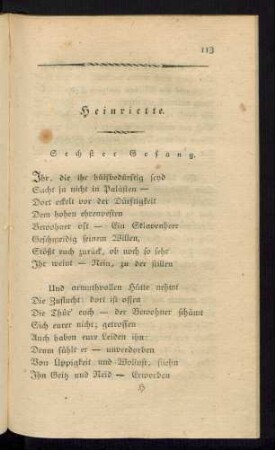 113
Heinriette.
Sechster Gesang.
Ihr, die ihr hülfsbedürftig seyd
Sucht ja nicht in Palästen —
Dort eckelt vor der Dürftigkeit
Dem hohen ehrenvesten
Bewohner oft — Ein Sklavenheer
Geschmeidig seinem Willen,
Stößt euch zurück, ob noch so sehr
Ihr weint — Nein, zu der stillen
Und armuthvollen Hütte nehmt
Die Zuflucht: dort ist offen
Die Thür' euch — der Bewohner schämt
Sich eurer nicht; getroffen
Auch haben eure Leiden ihn:
Drum fühlt er — unverdorben
Von Üppigkeit und Wollust, fliehn
Ihn Geitz und Neid — Erworben
H